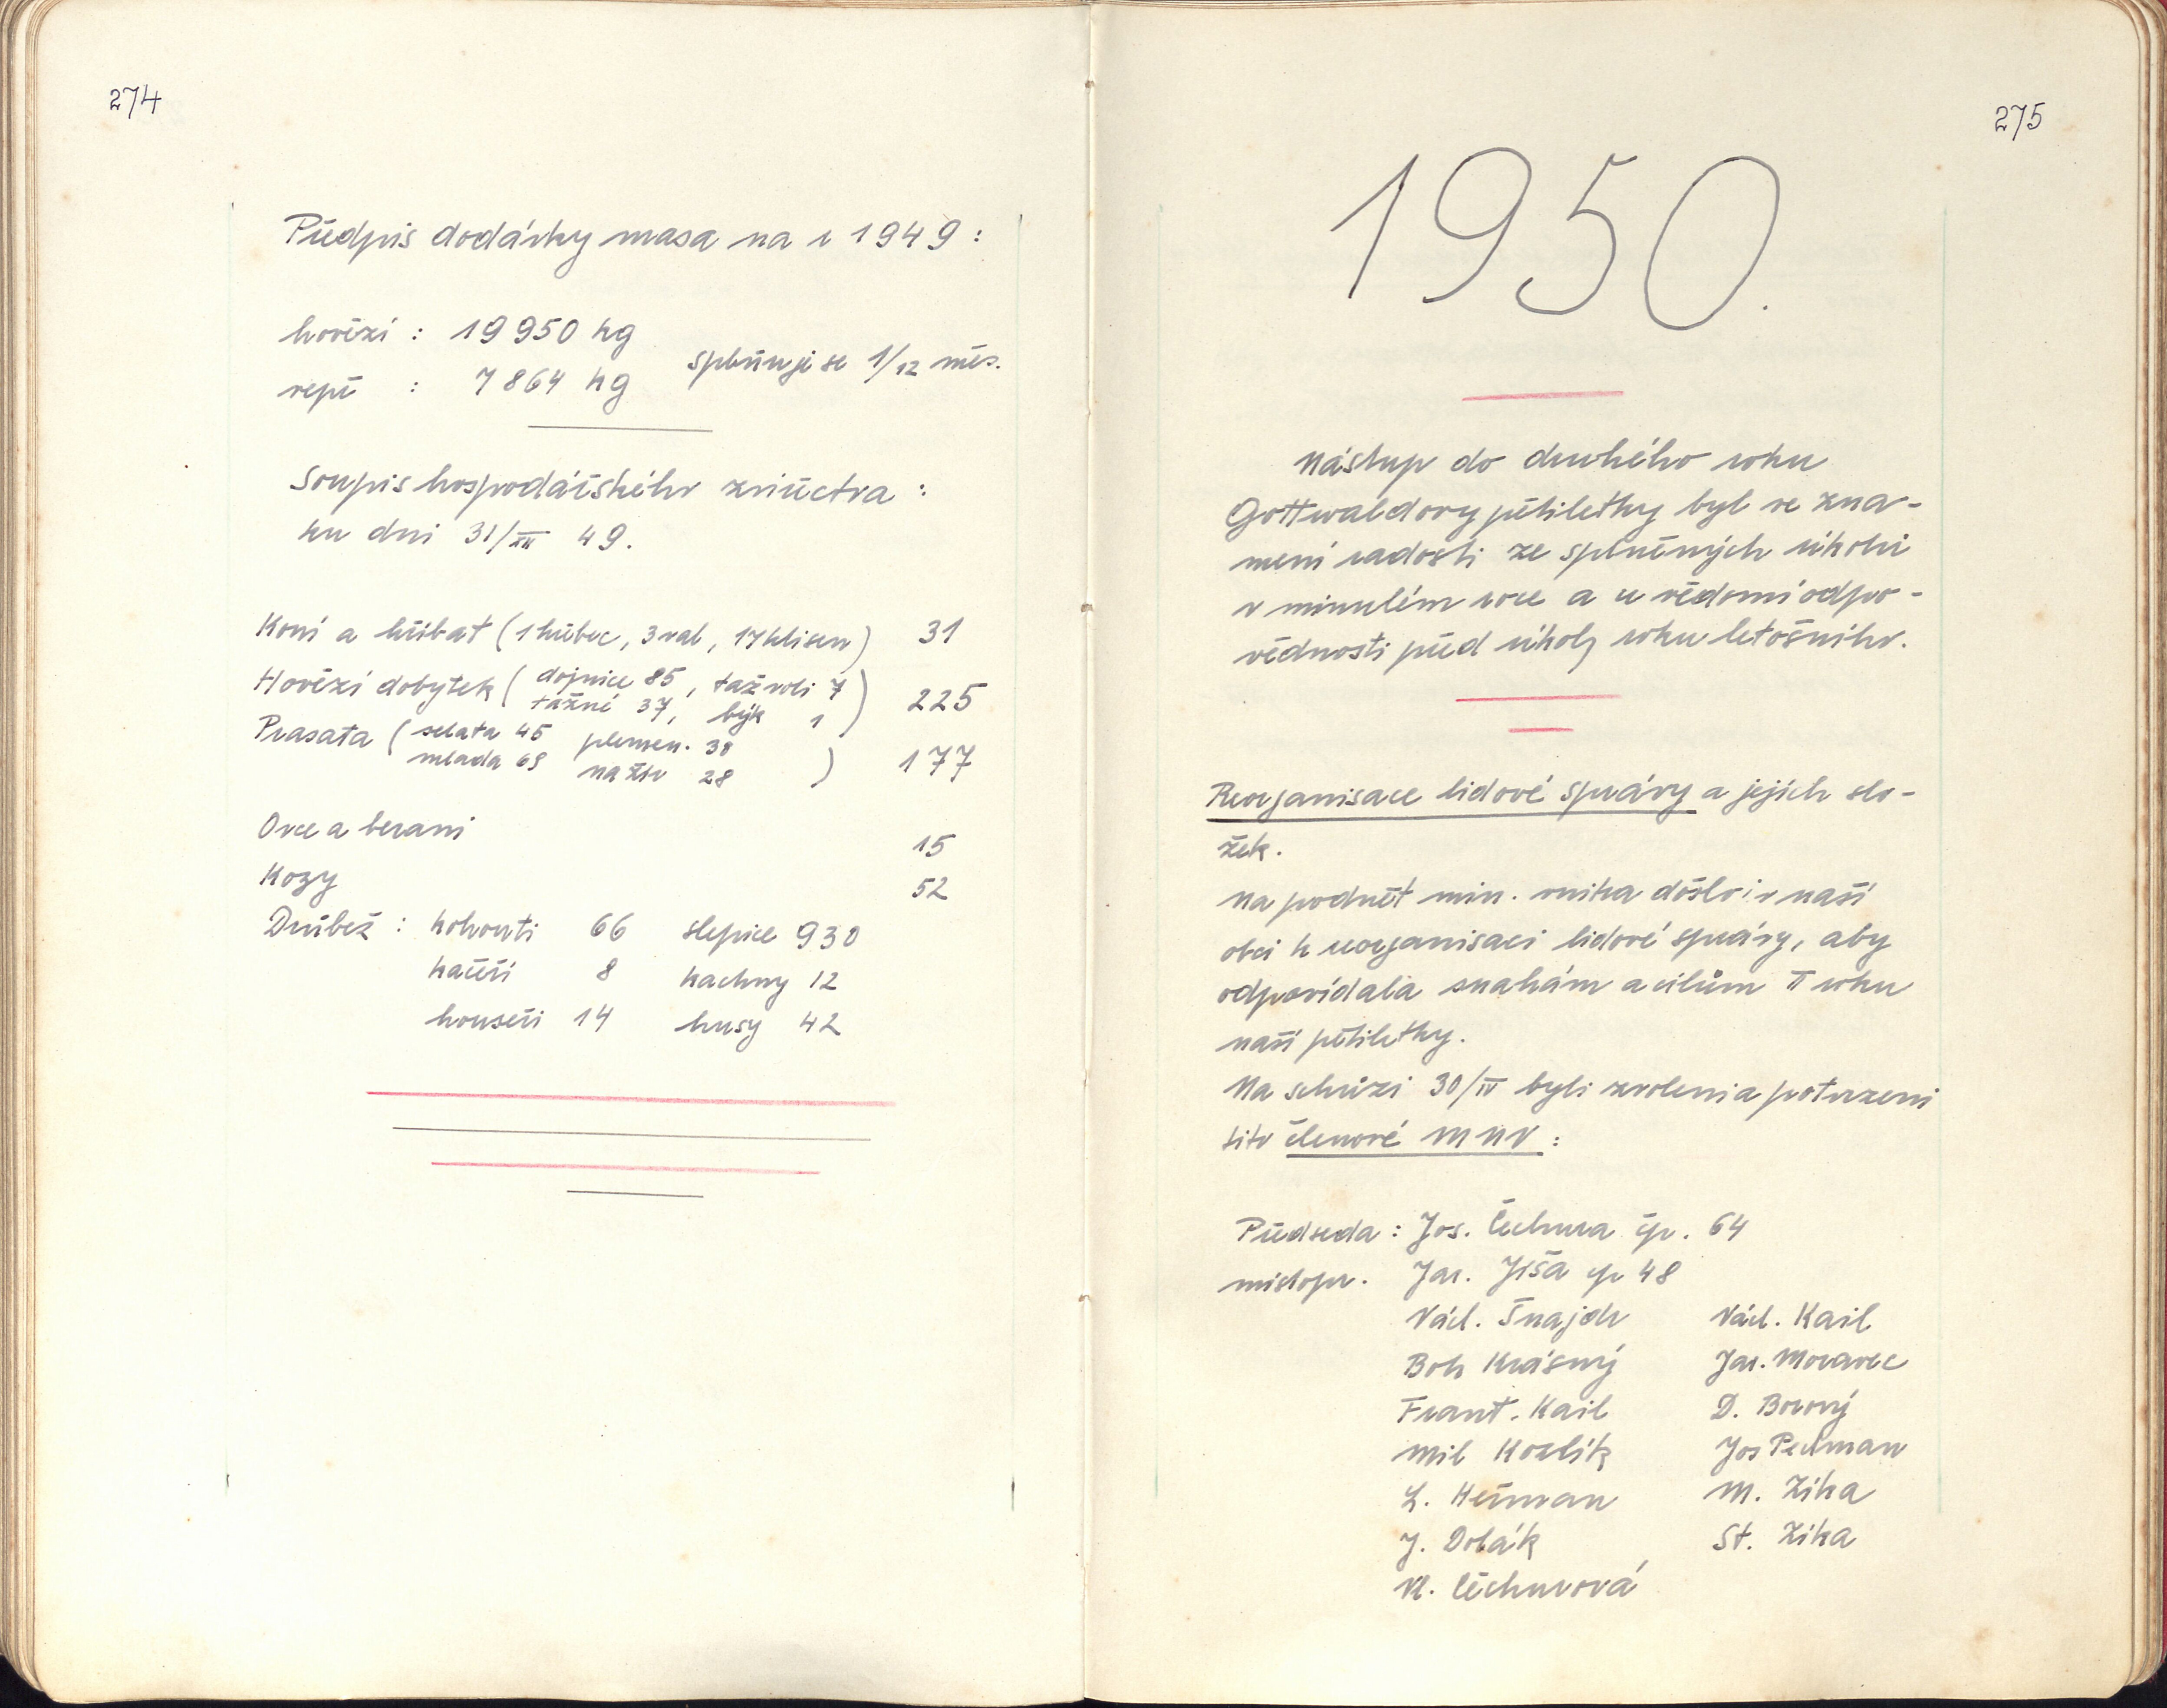 274
Předpis dodávky masa na r 1949 :
hovězí : 19 950 kg
vepř : 7 864 kg splňuje se 1/12 měs.
Soupis hospodářského zvířectva :
ku dni 31/XII 49.
Koní a hříbat (1 hřebec, 3 val, 17 klisen) 31
Hovězí dobytek ( dojnice 85, taž voli 7
tažné 37, býk 1 ) 225
Prasata ( selata 45 plemen. 38
mlada 69 na žír 28 ) 177
Ovce a berani 15
Kozy 52
Drůbež : kohouti 66 slepice 930
kačeři 8 kachny 12
houseři 14 husy 42
275
1950.
Nástup do druhého roku
Gottwaldovy pětiletky byl ve zna-
mení radosti ze splněných úkolů
v minulém roce a u vědomí odpo-
vědnosti před úkoly roku letošního.
Reorganisace lidové správy a jejích slo-
žek.
Na podnět min. vnitra došlo i v naší
obci k reorganisaci lidové správy, aby
odpovídala snahám a cílům II roku
naší pětiletky.
Na schůzi 30/IV byli zvoleni a potvrzeni
tito členové MNV :
Předseda : Jos. Čechura čp. 64
místopr. Jar. Jíša čp 48
Václ. Šnajdr Václ. Kail
Boh Krásný Jar. Moravec
Frant. Kail D. Borový
Mil Kozlík Jos Pechman
L. Heřman M. Zika
J. Dolák St. Zika
Vl. Čechurová